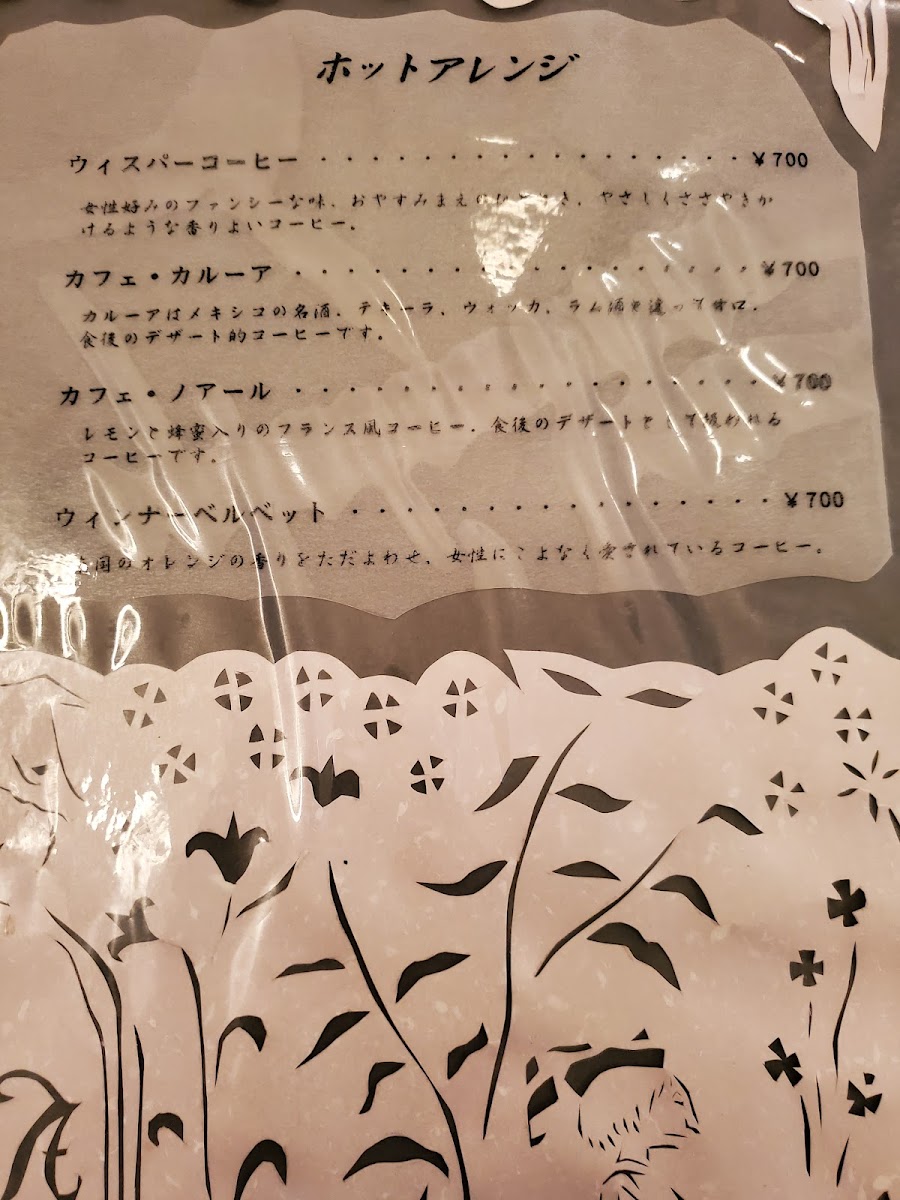 ホットアレンジ
ウィスパーコーヒー ・・・・・・・・・・・・・・・・・ ¥700
女性好みのファンシーな味、おやすみまえのひととき、やさしくささやきか
けるような香りよいコーヒー。
カフェ・カルーア ・・・・・・・・・・・・・・・・・・ ¥700
カルーアはメキシコの名酒、テキーラ、ウォッカ、ラム酒と違って甘口、
食後のデザート的コーヒーです。
カフェ・ノアール ・・・・・・・・・・・・・・・・・・ ¥700
レモンと蜂蜜入りのフランス風コーヒー。食後のデザートとして扱われる
コーヒーです。
ウィンナーベルベット ・・・・・・・・・・・・・・・・ ¥700
のオレンジの香りをただよわせ、女性にこよなく愛されているコーヒー。